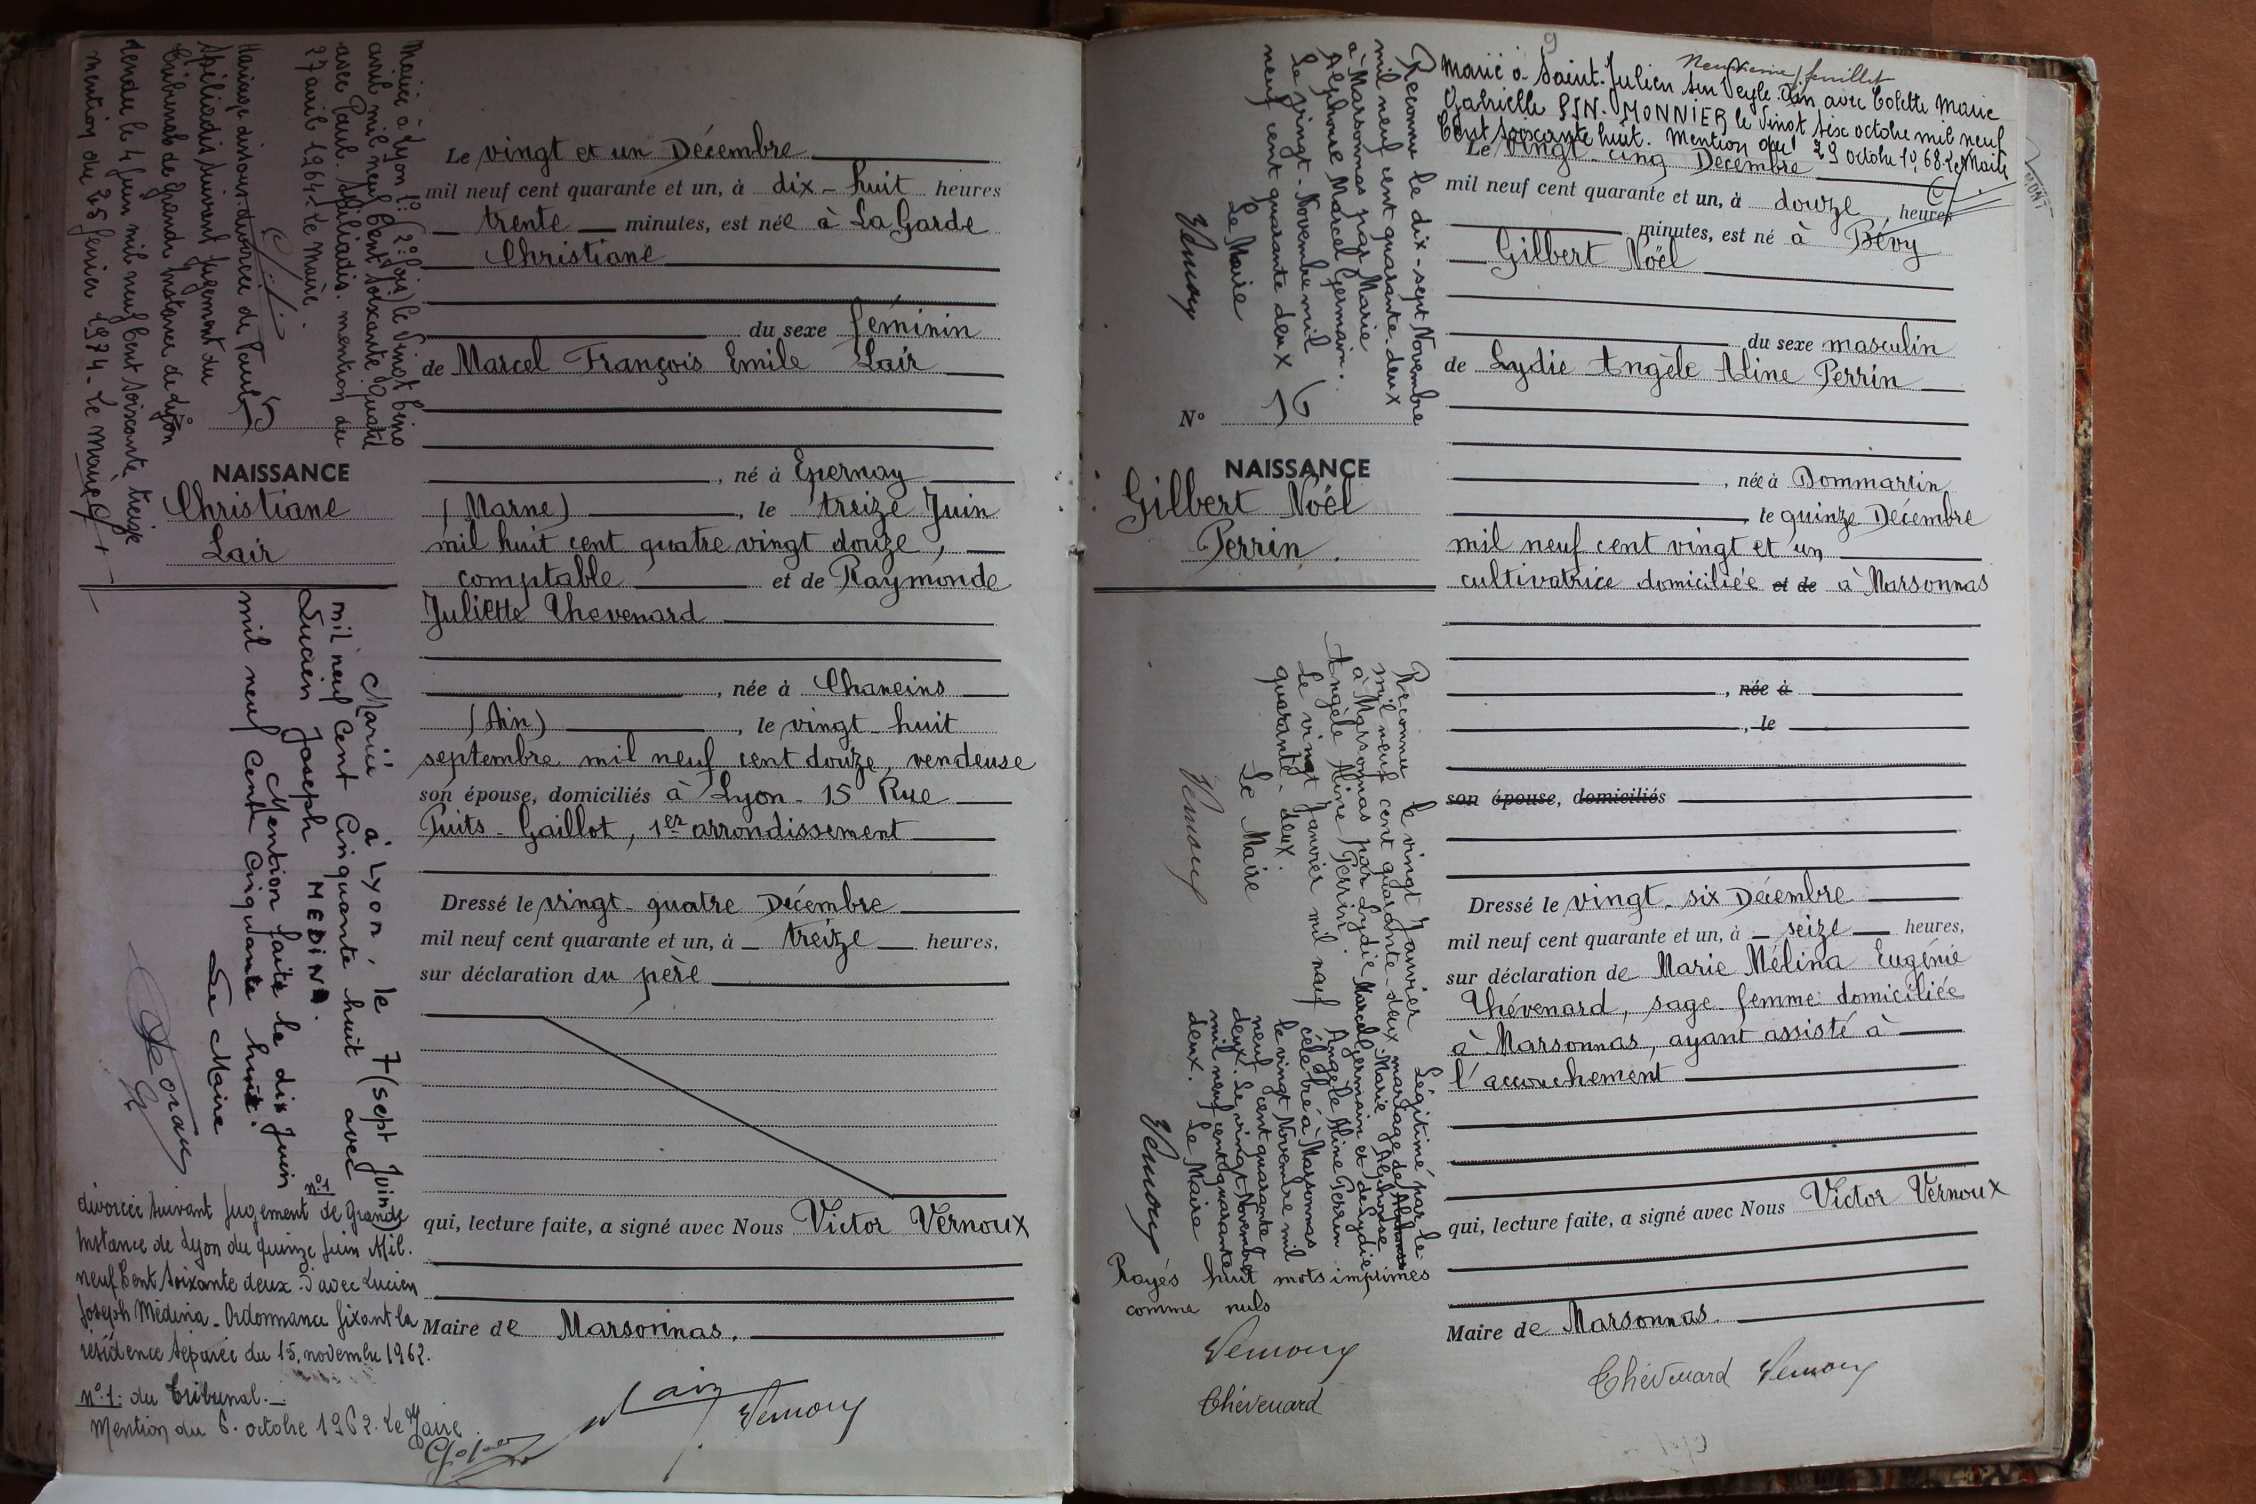 Le vingt et un Décembre
mil neuf cent quarante et un, à dix-huit heures
trente minutes, est née à La Garde
Christiane
du sexe féminin
de Marcel François Emile Lair
15
NAISSANCE
Christiane
Lair
, né à Epernay
(Marne) , le treize Juin
mil huit cent quatre vingt douze,
comptable et de Raymonde
Juliette Thevenard
, née à Chaneins
(Ain) , le vingt-huit
septembre mil neuf cent douze, vendeuse
son épouse, domiciliés à Lyon - 15 Rue
Puits-Gaillot, 1er arrondissement
Dressé le vingt-quatre Décembre
mil neuf cent quarante et un, à treize heures,
sur déclaration du père
qui, lecture faite, a signé avec Nous Victor Vernoux
Maire de Marsonnas.
Lair Vernoux
Mariée à Lyon 1º (2º fois) le vingt cinq
avril mil neuf Cent soixante quatre
avec Paul Spiliadis. mention du
27 avril 1964 - Le Maire.
Mariage dissous divorcée de Paul
Spiliadis suivant jugement du
tribunal de grande instance de Lyon
rendu le 4 juin mil neuf Cent soixante treize
mention du 25 février 1974 - Le Maire
Mariée à Lyon, le 7 (sept Juin)
mil neuf Cent Cinquante huit avec
Lucien Joseph MEDINA.
Mention faite le dix Juin
mil neuf Cent Cinquante huit.
Le Maire
divorcée suivant jugement nº1 de Grande
Instance de Lyon du quinze juin Mil.
neuf Cent soixante deux. d'avec Lucien
Joseph Médina - Ordonnance fixant la
résidence séparée du 15, novembre 1962.
nº.1: du Tribunal.
Mention du 6. octobre 1962. Le Maire
9
Neuvième feuillet
Marié à Saint-Julien sur Veyle. Ain avec Colette Marie
Gabrielle PIN-MONNIER le vingt six octobre mil neuf
Cent soixante huit. Mention du 29 octobre 1968. Le Maire
Le vingt-cinq Décembre
mil neuf cent quarante et un, à douze heures
minutes, est né à Bévy
Gilbert Noël
du sexe masculin
de Lydie Angèle Aline Perrin
Nº 16
NAISSANCE
Gilbert Noël
Perrin.
, née à Dommartin
, le quinze Décembre
mil neuf cent vingt et un
cultivatrice domiciliée et de à Marsonnas
, née à
, le
son épouse, domiciliés
Dressé le vingt-six Décembre
mil neuf cent quarante et un, à seize heures,
sur déclaration de Marie Mélina Eugénie
Thévenard, sage femme domiciliée
à Marsonnas, ayant assisté à
l'accouchement
qui, lecture faite, a signé avec Nous Victor Vernoux
Maire de Marsonnas.
Thévenard Vernoux
Reconnu le dix-sept Novembre
mil neuf cent quarante-deux
à Marsonnas par Marie
Alphonse Marcel Germain.
Le vingt-Novembre mil
neuf cent quarante deux
Le Maire
Vernoux
Reconnu le vingt Janvier
mil neuf cent quarante-deux
à Marsonnas par Lydie
Angèle Aline Perrin.
Le vingt Janvier mil neuf
quarante-deux.
Le Maire
Vernoux
Légitimé par le
mariage de Alphonse
Marie Alphonse
Marcel Germain et de Lydie
Angèle Aline Perrin
célébré à Marsonnas
le vingt Novembre mil
neuf cent quarante et
deux. Le vingt Novembre
mil neuf cent quarante
deux. Le Maire
Vernoux
Rayés huit mots imprimés
comme nuls
Vernoux
Thévenard